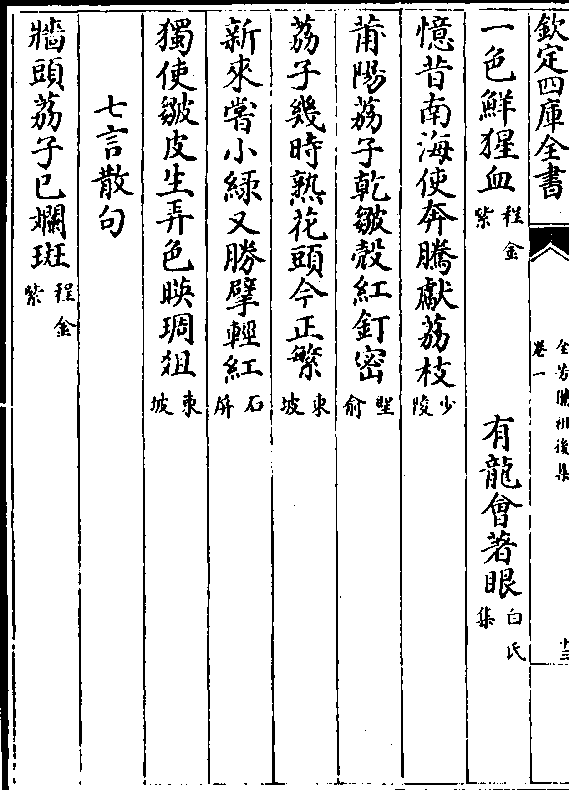 欽定四庫全書
全芳備祖後集
卷一
十三
一色鮮猩血程金紫 有龍會著眼白氏集
憶昔南海使奔騰獻荔枝少陵
莆陽荔子乾皺殼紅釘密聖俞
荔子幾時熟花頭今正繁東坡
新來嘗小綠又勝擘輕紅石屏
獨使皺皮生弄色映琱俎東坡
七言散句
牆頭荔子已斕斑程金紫